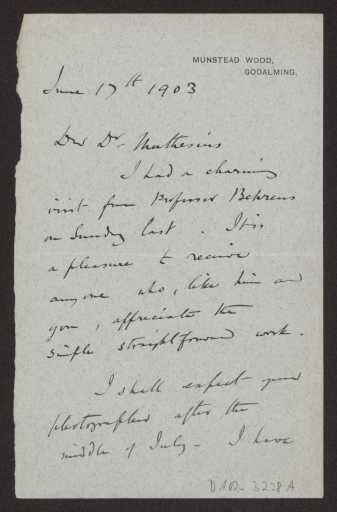 MUNSTEAD WOOD,
GODALMING.
June 17th 1903
Dear Dr. Muthesius
I had a charming
visit from Professor Behrens
on Sunday last. It is
a pleasure to receive
anyone who, like him and
you, appreciates the
simple straightforward work.
I shall expect your
photographer after the
middle of July - I have
D 102- 3238 A